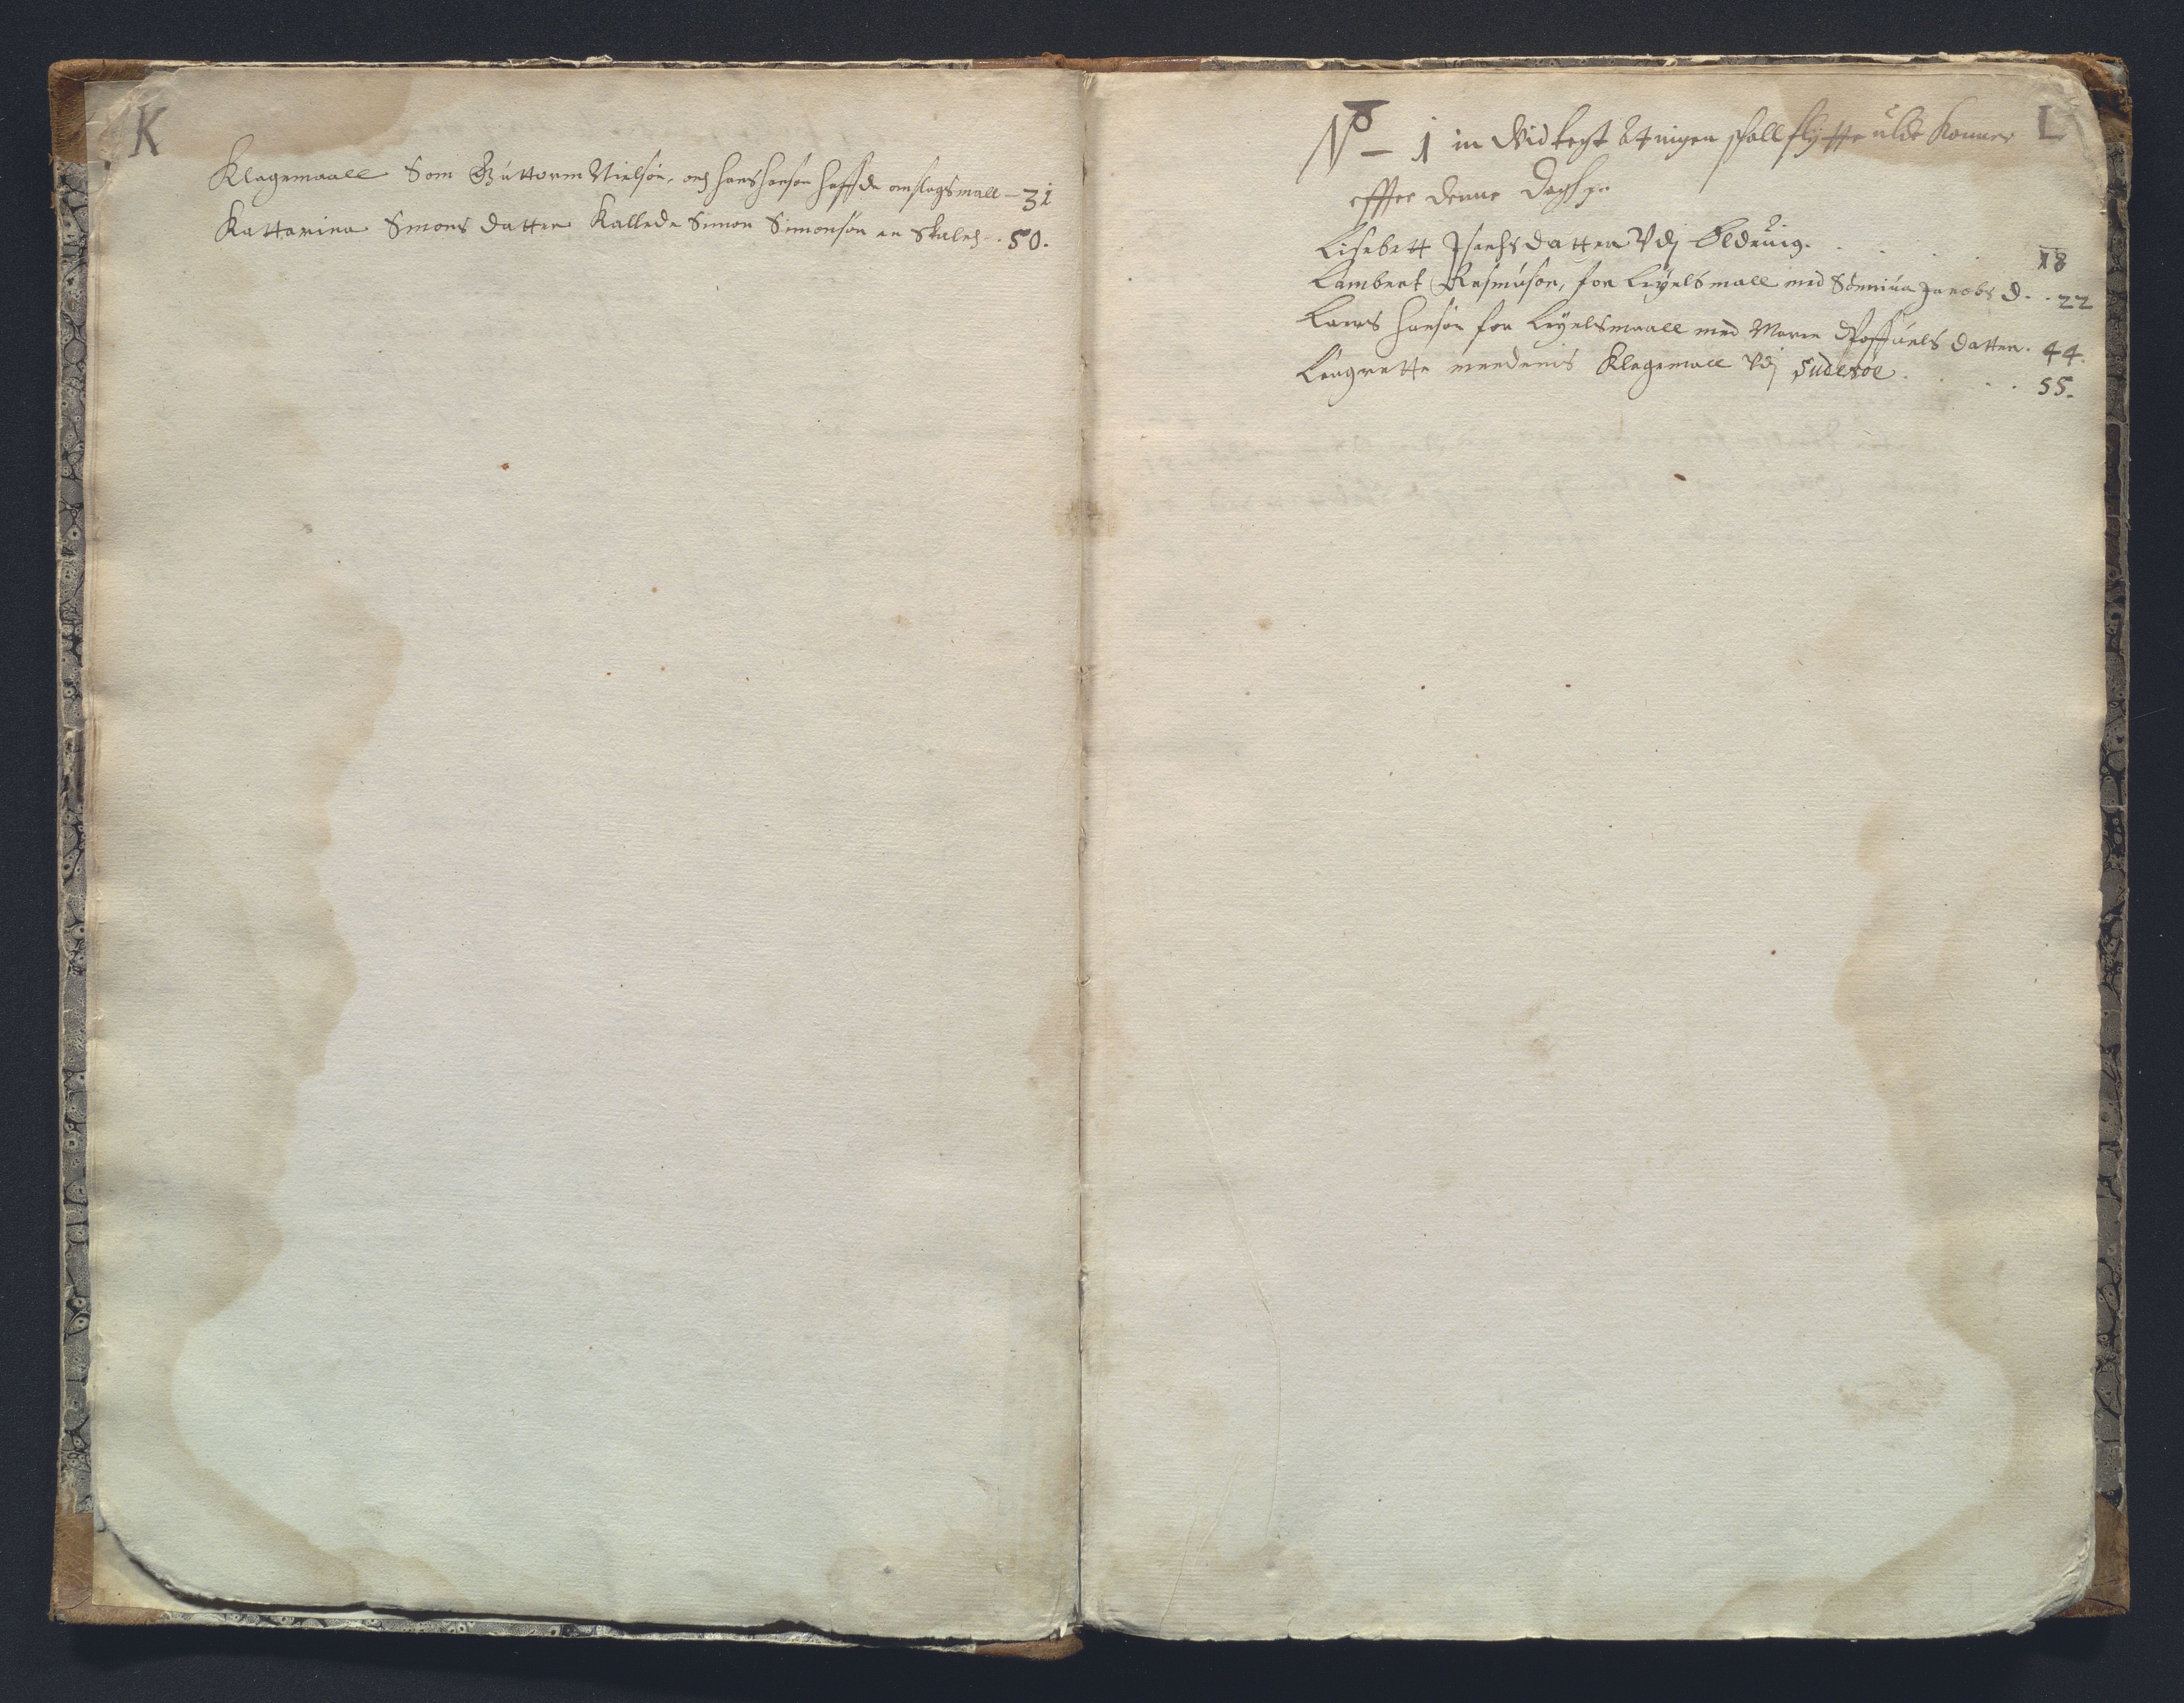 K
Klagemaale Som Guttorm Nielsøn, och hans hansøn haffde omslagsmall - 31
Kattarina Simons datter Kallede Simon Simonsøn en Skalch - 50.
L
No 1 en Vidtegt At ingen schall flytte Konner
effter denne Dagh
Lisebett Isachs datter Vdj Øldeuig. 18
Lambert Rasmusøn, for Leyelsmall med Sønniua Jacobs D. 22
Laurs hansøn for Leyelsmaall med Maren datter. 44.
Laugrette mendenis Klagemall Vdj Suderøe 55.